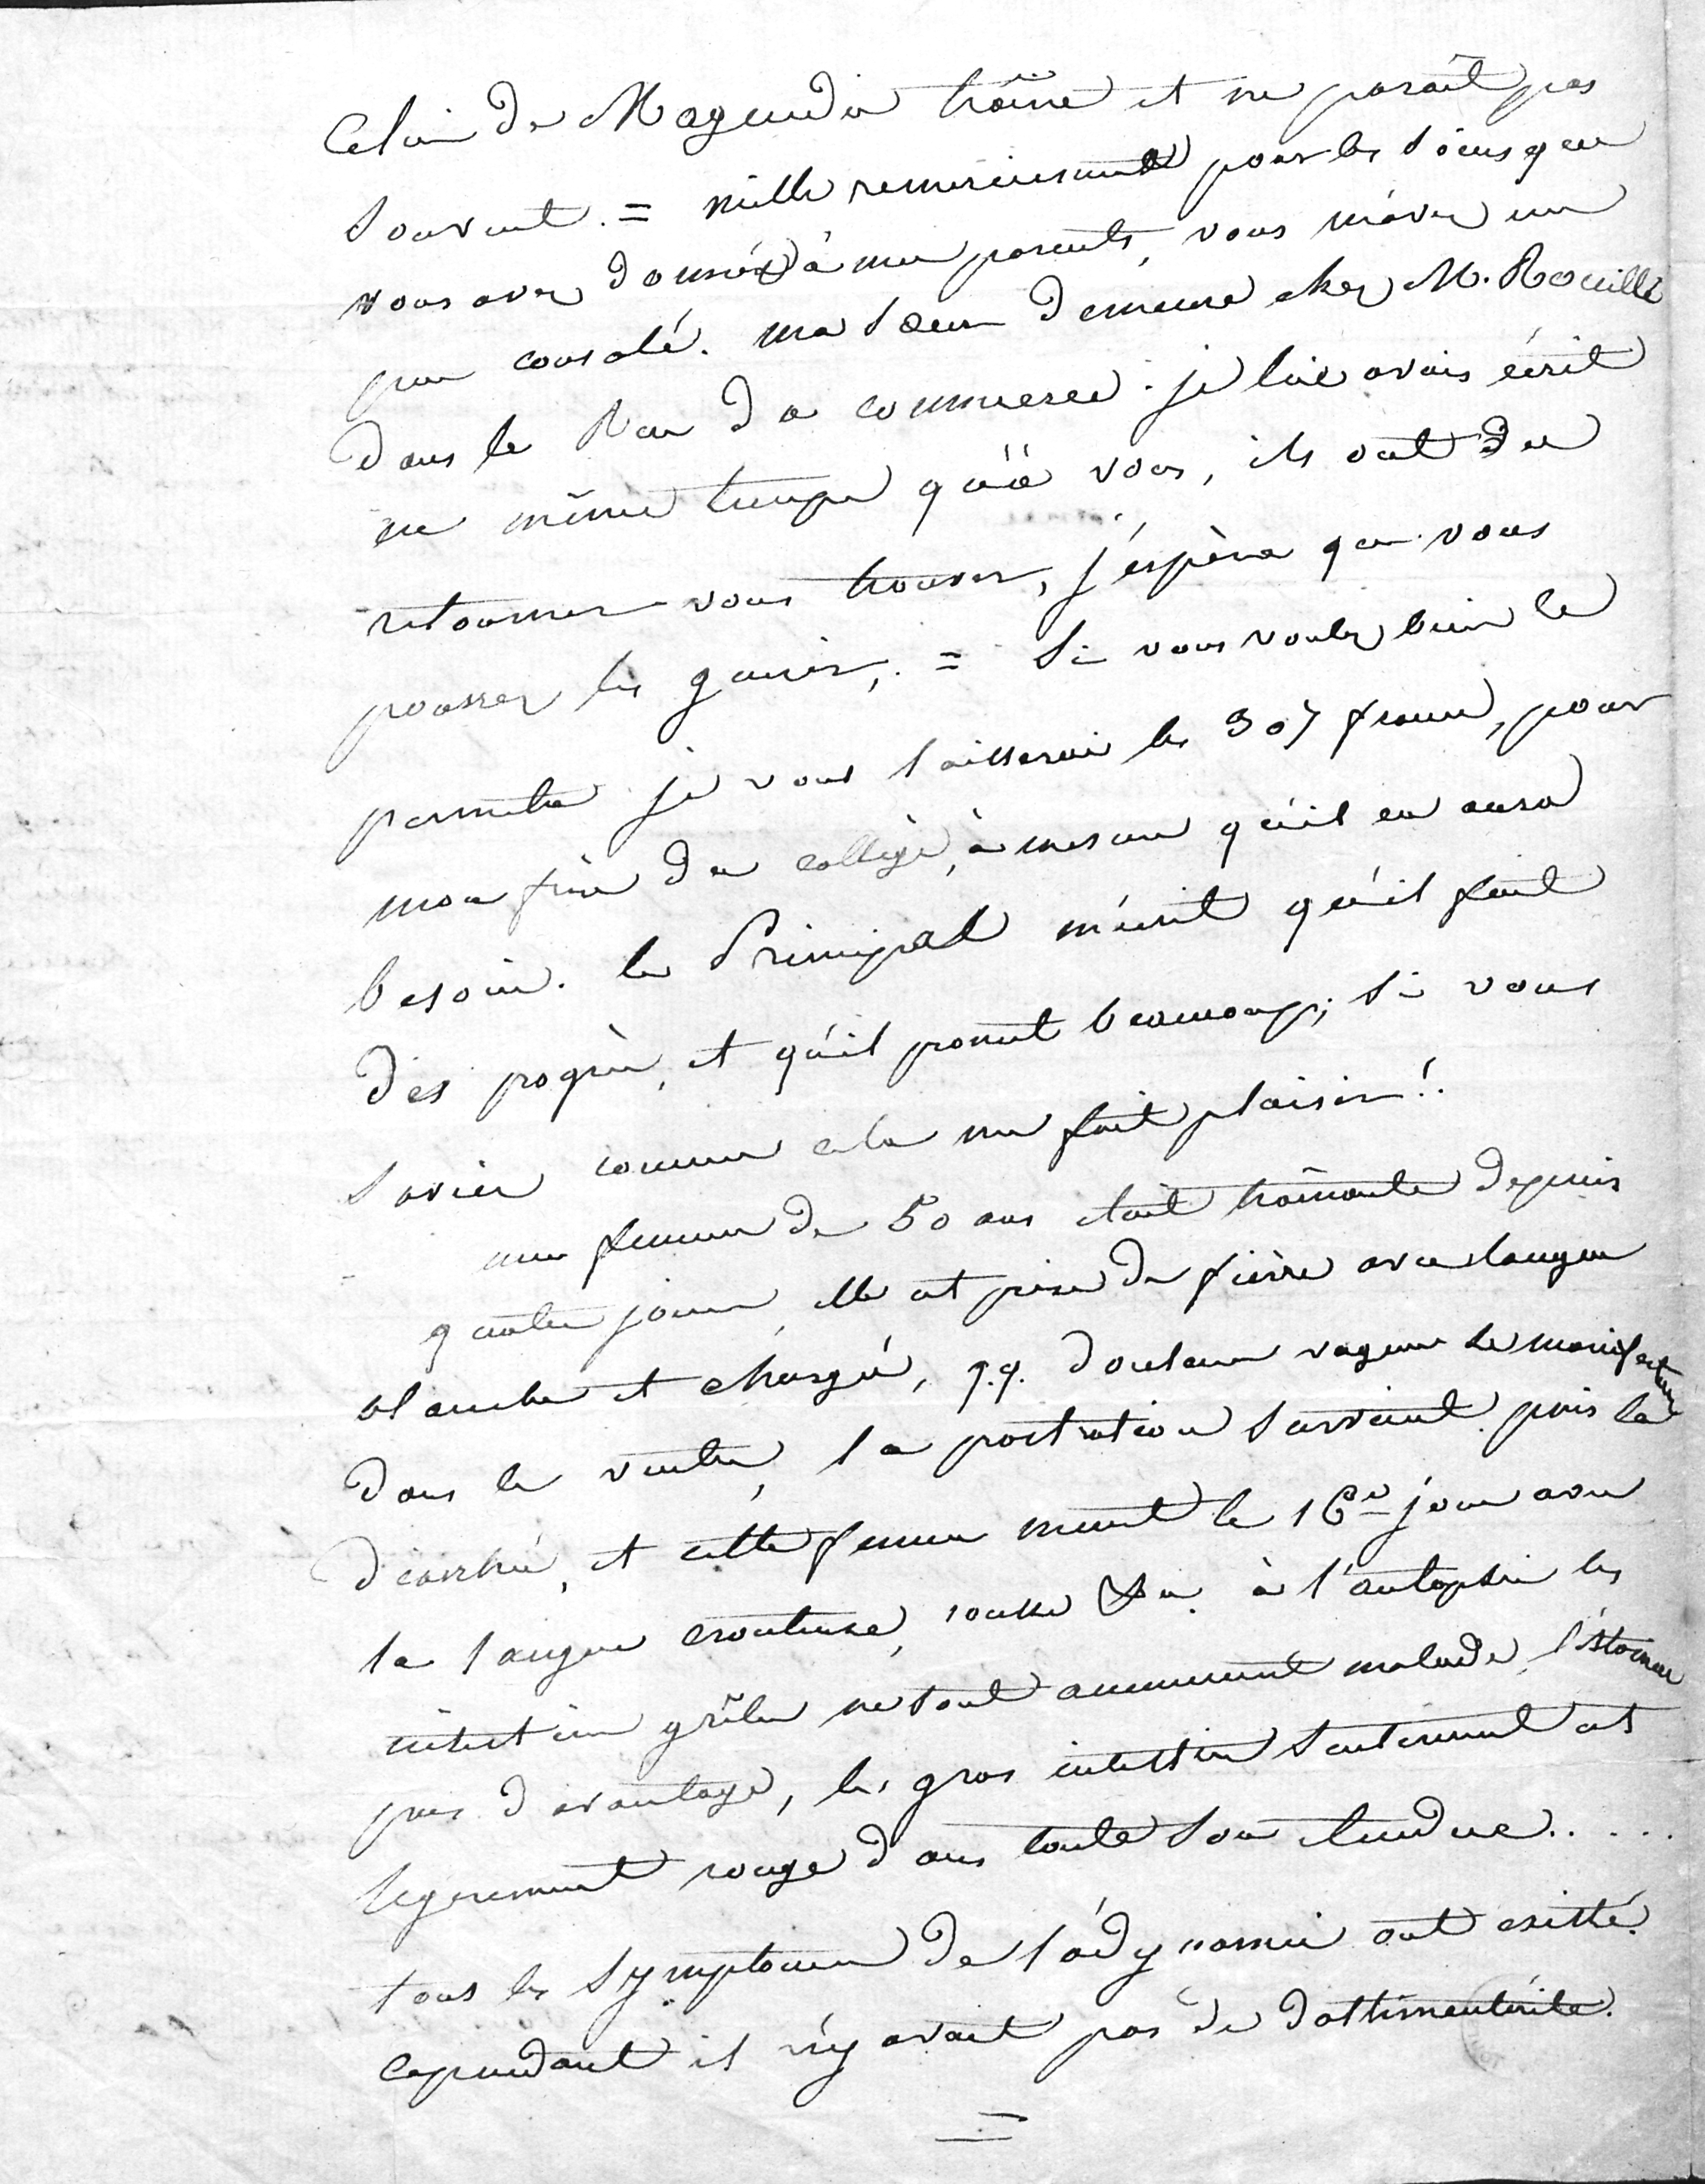 Celui de Magendie traîne et ne parait pas
souvent. = mille remerciements pour les soins que
vous avez donnés à mes parents, vous m'avez un
peu consolé. ma soeur demeure chez M. Rouillé
dans la Rue du commerce. je lui avais écrit
en même temps qu'à vous, ils ont du
retourner vous trouver, j'espère que vous
pourrez les guérir. = Si vous voulez bien le
permettre je vous laisserai les 307 francs, pour
mon frère du collège, à mesure qu'il en aura
besoin. le Principal m'écrit qu'il fait
des progrès, et qu'il promet beaucoup; si vous
saviez comme cela me fait plaisir!.
une femme de 50 ans était traînante depuis
quatre jours, elle est prise de fièvre avec langue
blanche et chargée, q.q. douleurs vagues se manifestent
dans le ventre, la prostration survient puis la
diarrhée, et cette femme meurt le 16e jour avec
la langue crouteuse, rousse &a. à l'autopsie les
intestins grêles ne sont aucunement malades, l'estomac
pas d'avantage, les gros intestins seulement est
légerement rouge dans toute son étendue.....
tous les symptomes de l'adynamie ont existé.
cependant il n'y avait pas de dothinentérite.
=